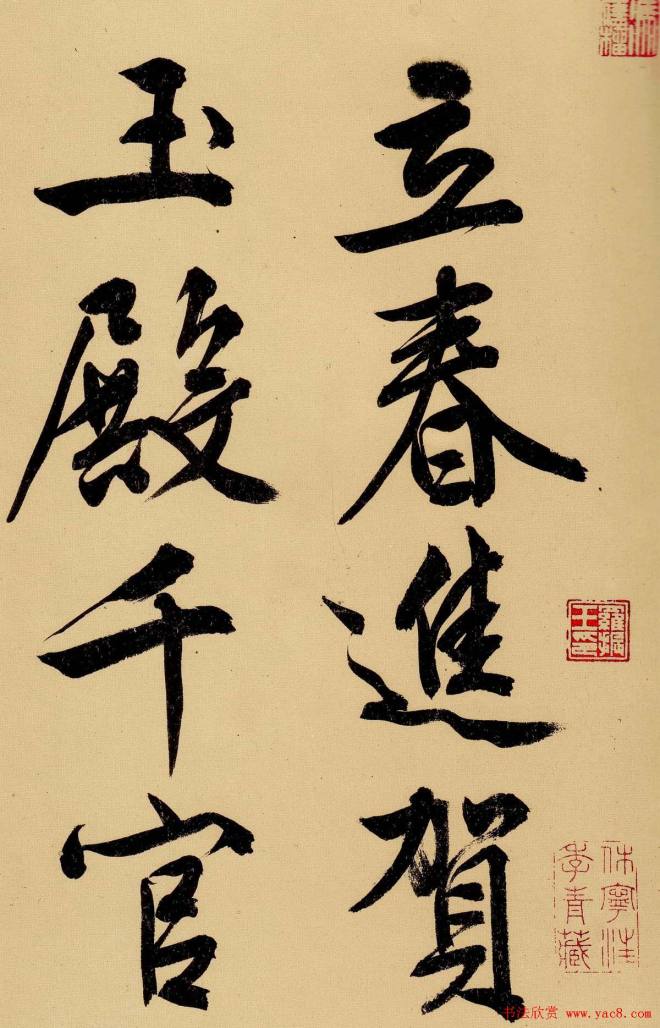 立春進賀
玉殿千官
休寧汪
季青藏
书法欣赏 www.yac8.com